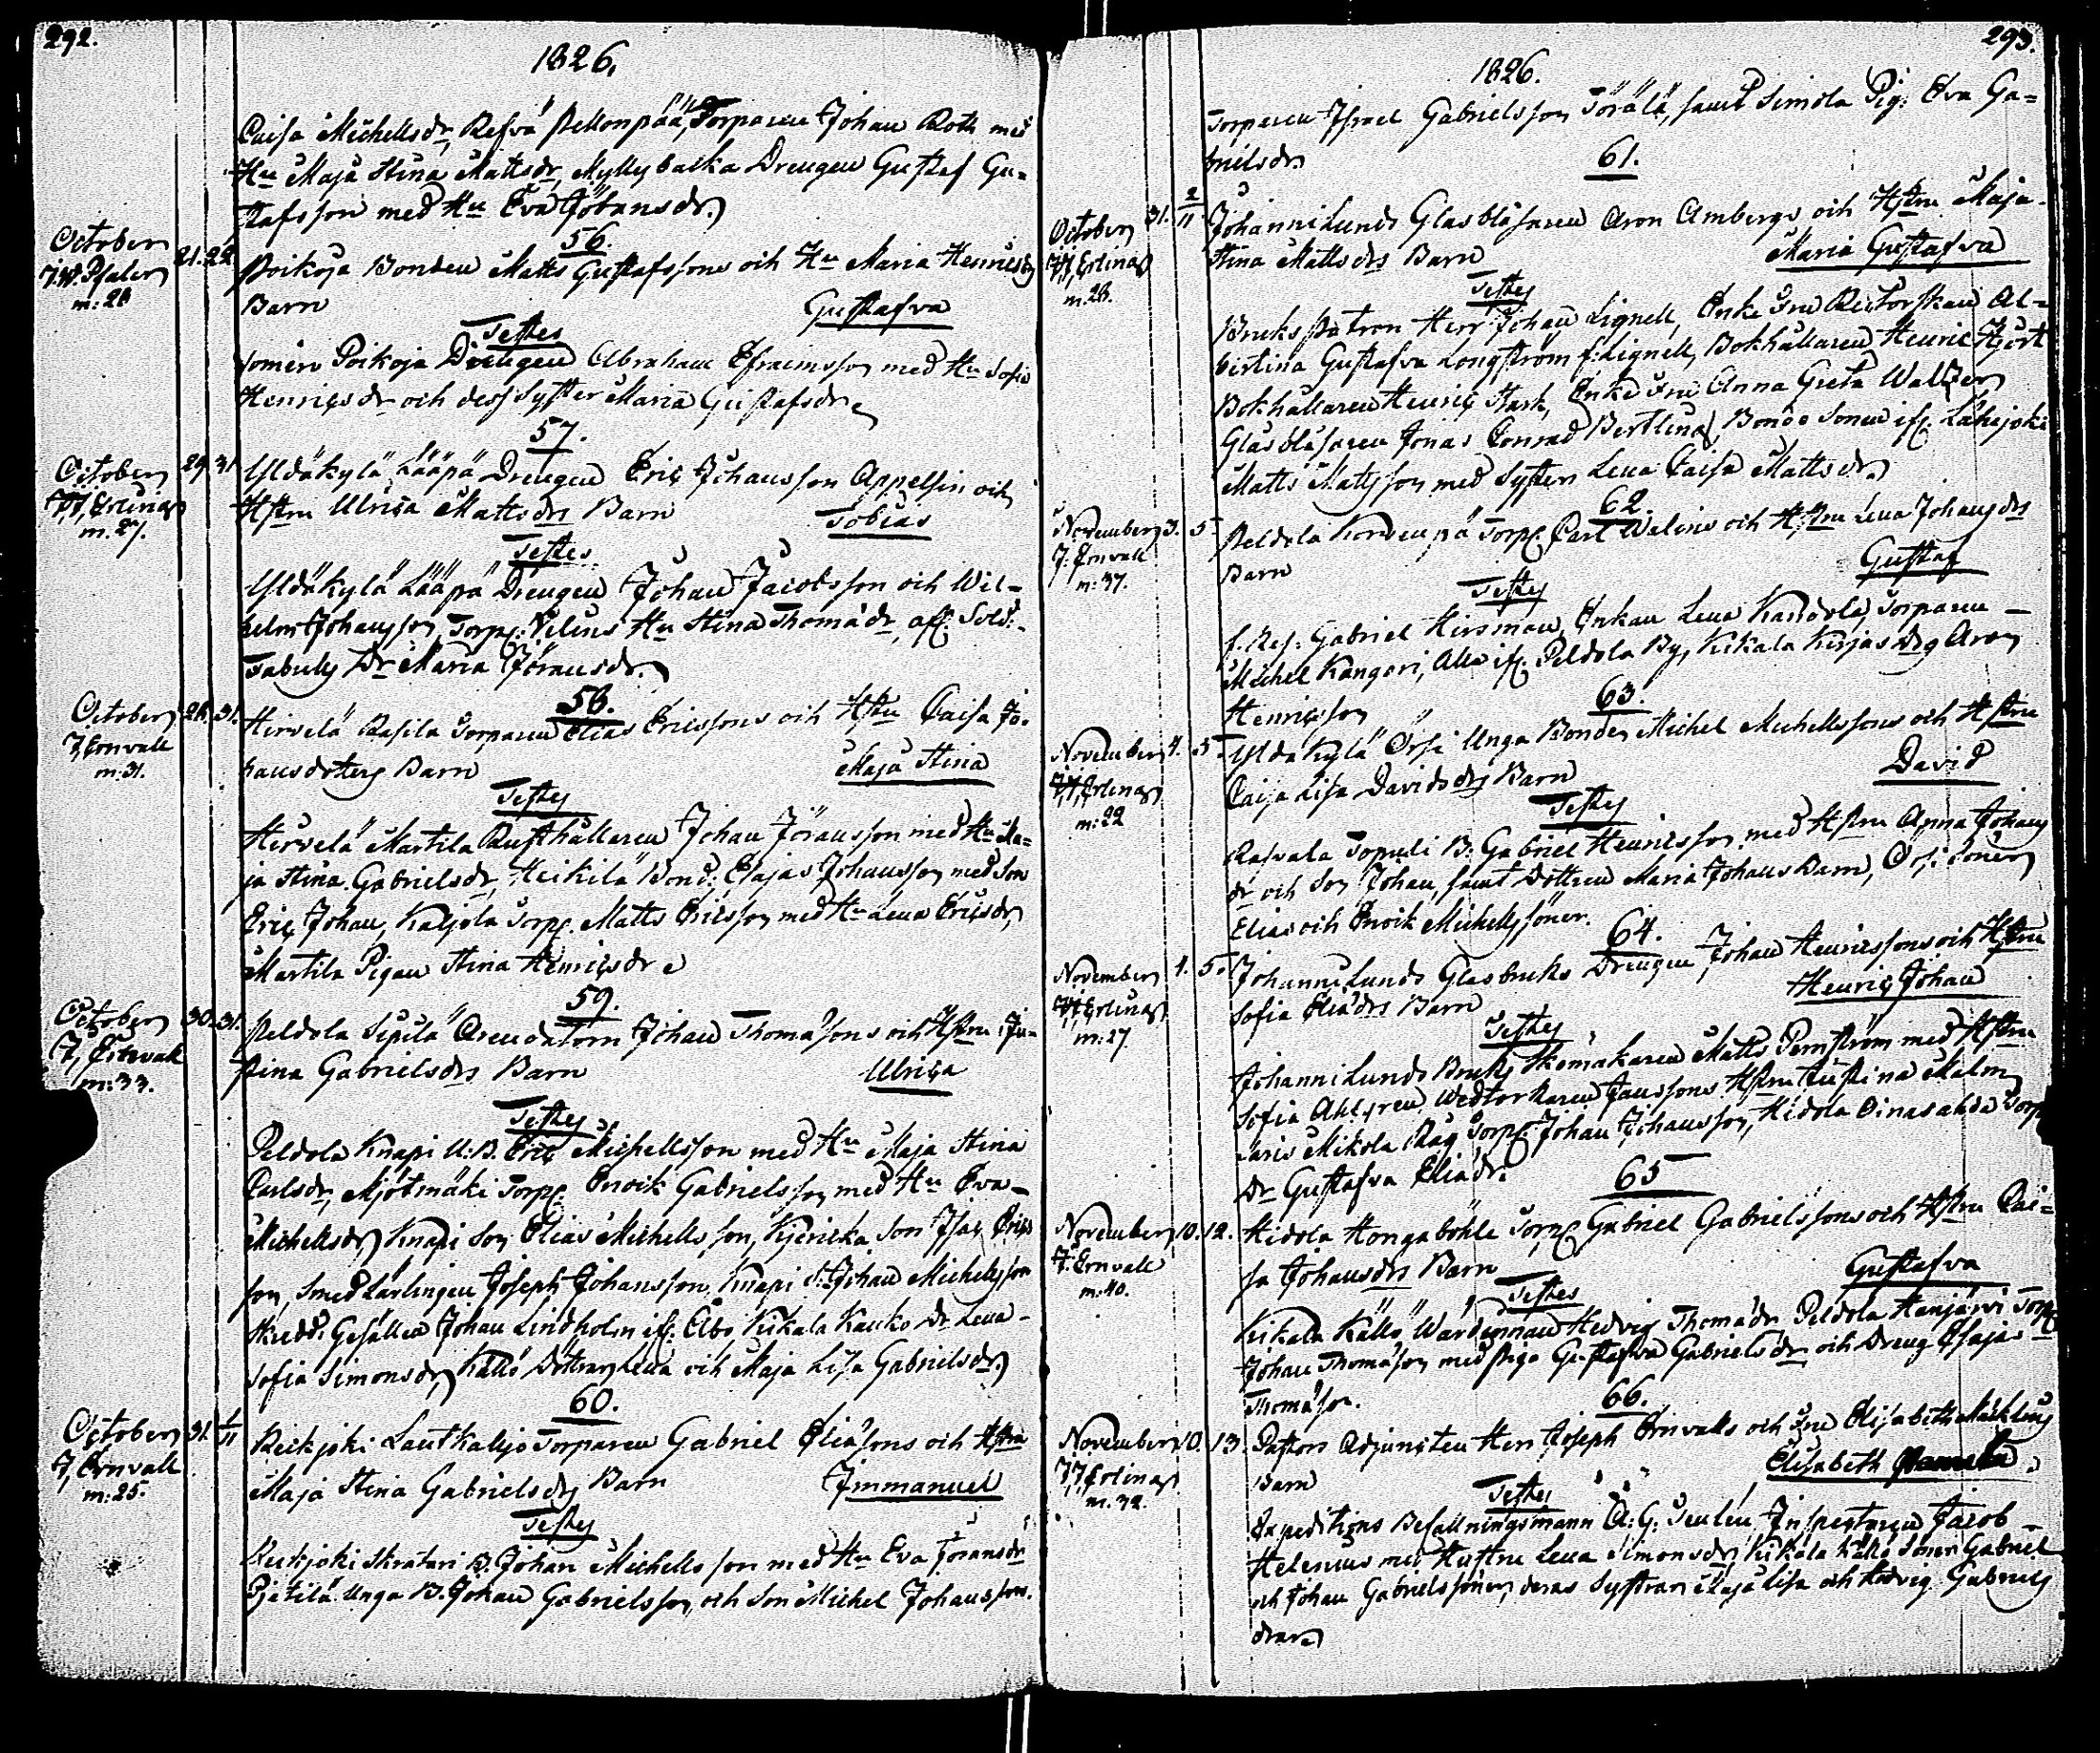 292.
1826.
Caisa Michelsdr, Refvä Pellonpää, Torparen Johan Roth med
Hu Maja Stina Mattsdr, Myllybacka Drengen Gustaf Gu-
stafsson med Hu Eva Johansdr.
56.
October 21. 22.
J. W.
m: 28
Poikoja Bonden Matts Gustafssons och Hu Maria Henricsdrs
Barn Gustafva
Testes
Somero Poikoja Drengen Abraham Efraimsson med Hu Sofia
Henricsdr och dess Syster Maria Gustafsdr
57.
October 29 31
m. 27.
Yldäkylä Lääpä Drengen Eric Johansson Appelsin och
Hstru Ulrica Mattsdrs Barn Tobias
Testes
Yldäkylä Lääpä Drengen Johan Jacobsson och Wil-
helm Johansson, Torp: Velins Hu Stina Thomädr, aff: Sold:
Dr Maria Jöransdr.
58.
October 28. 31.
J. Ernvall
m: 31.
Hirvelä Rasila Torparen Elias Ericssons och Hstru Caisa Jo-
hansdoters Barn Maja Stina
Testes
Hirvelä Martila Rusthållaren Johan Jöransson med Hu Ma-
ja Stina Gabrielsdr, Heikilä Bond: Esajas Johansson med Son
Eric Johan, Kaljola Torp: Matts Ericsson med Hu Lena Ericsdr,
Martila Pigan Stina Henricsdr
59.
October 30. 31.
J. Ernvall
m: 33.
Peldola Sipilä Arendatorn Johan Thomäsons och Hstru Ju-
stina Gabrielsdrs Barn Ulrica
Testes
Peldola Knapi U: B. Eric Michelsson med Hu Maja Stina
Carlsdr, Mjötmäki Torp: Enoik Gabrielsson med Hu Eva
Michelsdr, Knapi Son Elias Michelsson, Son Isac Erics
son, Smed Lärlingen Joseph Johansson, Knapi S: Johan Michelsson
Skredd: Gesällen Johan Lindholm if: Åbo, Kikala Kauko Dr Lena
Sofia Simonsdr, Källö Döttrar Lena och Maja Lisa Gabrielsdr.
60.
October 31. 1/11
J. Ernvall
m: 25.
Reikjoki Lautkaljo Torparen Gabriel Eliäsons och Hstru
Maja Stina Gabrielsdrs Barn Immanuel
Testes
Reikjoki Skrätari B. Johan Michelsson med Hu Eva Jöransdr
Pjätilä Unga B. Johan Gabrielsson, och Son Michel Johansson.
293.
1826.
Torparen Israel Gabrielsson Törälä, samt Simola Pig: Eva Ga-
brielsdr.
61.
October 31. 2/11
m. 28.
JohanniLunds Glasblåsaren Aron Ambergs och Hstru Maja
Stina Mattsdrs Barn Maria Gustafva
Testes
Bruks Patron Herr Johan Lignell, Enke Fru Rectorskan Al-
bertina Gustafva Longström f: Lignell, Bokhållaren Henric Hjort
Bokhållaren Henric Stark, Enke Fru Anna Greta Walter
Glasblåsaren Jonas Conrad Bertlin, Bonde Sonen if: Lahisjoki
Matts Mattsson med Syster Lena Caisa Mattsdr
62.
November 3. 5
J. Ernvall
m: 37.
Peldola Korvenpä Torp: Carl Walins och Hstru Lena Johansdrs
Barn Gustaf
Testes
f. Ref: Gabriel Hirsman, Enkan Lena Kandola, Torparen
Michel Kangari, Alla if: Peldola By, Kikala Kirjas Drg Aron
Henricsson
63.
November 4. 5
m: 22
Yldäkylä Orsi Unga Bonden Michel Michelssons och Hstru
Caisa Lisa Davidsdrs Barn David
Testes
Rasvala Topuli B: Gabriel Henricsson med Hstru Anna Johans
dr och Son Johan, samt Dottren Maria Johans Barn, Orsi Söner
Elias och Enoik Michelssöner.
64.
November 1. 5.
m: 27
JohanniLunds Glasbruks Drengen Johan Henricssons och Hstru
Sofia Eliädrs Barn Henric Johan
Testes
JohanniLunds Bruks Skomakaren Matts Pernström med Hstru
Sofia Ahlgren, Janssons Hstru Justina Malm
Mikola Torp: Johan Johansson, Hidola Oinasahda Torp
Dr Gustafva Eliädr.
65
November 10. 12.
J. Ernvall
m: 40.
Hidola Hongaböhle Torp: Gabriel Gabrielssons och Hstru Cai-
sa Johansdrs Barn Gustafva
Testes
Kikala Källö Wärdinnan Hedvig Thomädr, Peldola Hanjärvi Torp:
Johan Thomäson med Piga Gustafva Gabrielsdr och Dreng Esajas
Thomäson.
66.
November 10. 13.
m. 32.
Pastors Adjuncten Herr Joseph Ernvalls och Fru Elisabeth
Barn Elisabeth
Testes
Expeditions Befallningsmann A: G: Inspectoren Jacob
Helenius med Hustru Lena Simonsdr, Kikala Källö Söner Gabriel
och Johan Gabrielssöner, deras Systrar Maja Lisa och Hedvig Gabriels
drar